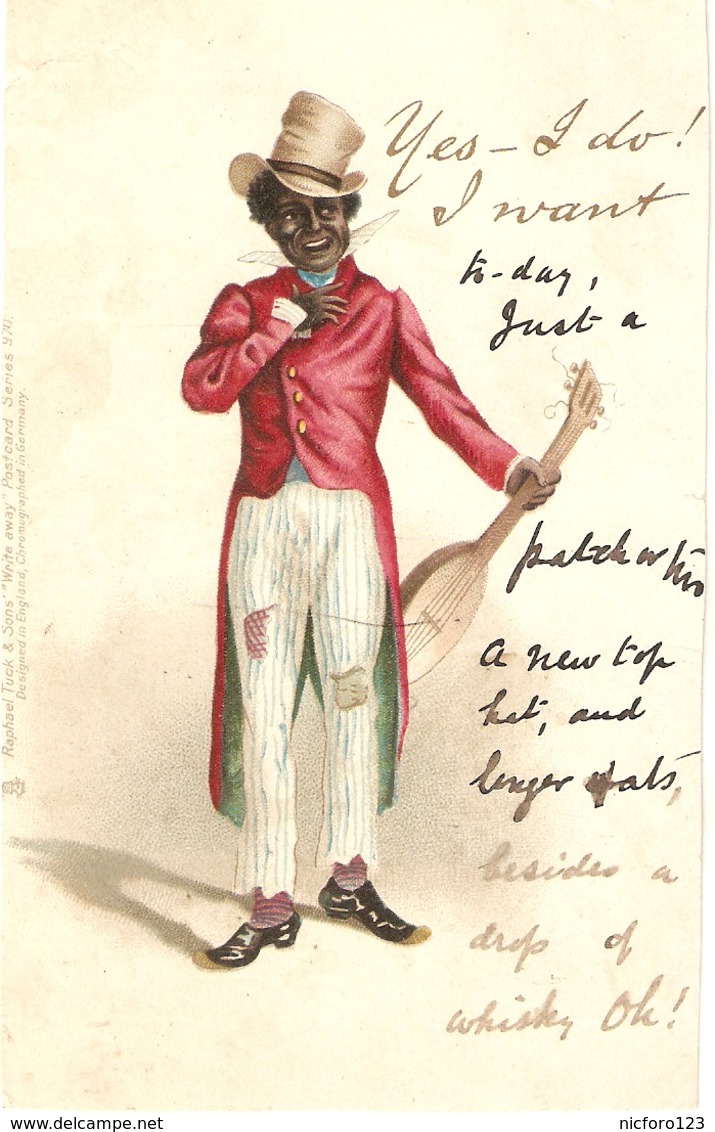 Yes – I do!
I want
to-day,
Just a
patch or two
A new top
hat, and
longer spats,
besides a
drop of
whisky Oh!
Raphael Tuck & Sons' "Write away" Postcard Series 970.
Designed in England, Chromographed in Germany.
www.delcampe.net
nicforo123